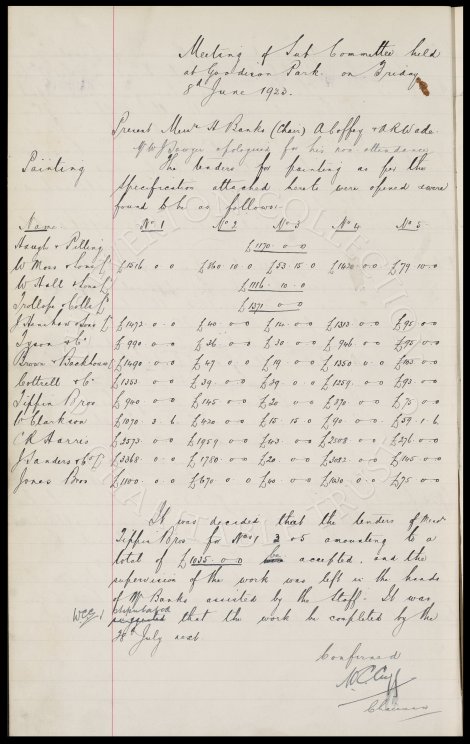 Meeting of Sub Committee held
at Goodison Park on Friday
8th June 1923.
Present Messrs H Banks (Chair) A Coffey & A R Wade.
Mr W J Sawyer apologised for his non attendance.
Painting
The tenders for painting as per the
specification attached hereto were opened & were
found to be as follows:-
Name No 1 No 2 No 3 No 4 No 5
Haugh & Pilling £1170-0-0
W Moss & Sons Ld £1516 0 0 £160 10 0 £53 15 0 £1420 0 0 £79 10 0
W Hall & Sons Ld £1116 10 0
Trollope & Colls Ld £1371 0 0
J Henshaw & Sons Ld £1472 0 0 £40 0 0 £14 0 0 £1313 0 0 £95 0 0
Tyson & Co £990 0 0 £36 0 0 £30 0 0 £946 0 0 £95 0 0
Brown & Backhouse £1490 0 0 £49 0 0 £19 0 0 £1350 0 0 £105 0 0
Cottrell & Co £1353 0 0 £39 0 0 £39 0 0 £1259 0 0 £93 0 0
Tippin Bros £940 0 0 £145 0 0 £20 0 0 £870 0 0 £75 0 0
W Clarkson £1070 3 6 £420 0 0 £15 15 0 £90 0 0 £59 1 6
C R Harris £2573 0 0 £1959 0 0 £143 0 0 £2508 0 0 £276 0 0
J Sanders & Co Ld £3368 0 0 £1780 0 0 £20 0 0 £3082 0 0 £145 0 0
Jones Bros £1100 0 0 £670 0 0 £40 0 0 £1030 0 0 £75 0 0
It was decided that the tenders of Messrs
Tippin Bros for Nos 1 3 & 5 amounting to a
total of £1035 0 0 be accepted, and the
supervision of the work was left in the hands
of Mr Banks assisted by the Staff. It was
WCC stipulated
suggested that the work be completed by the
28th July next.
Confirmed
W.C. Cuff
Chairman